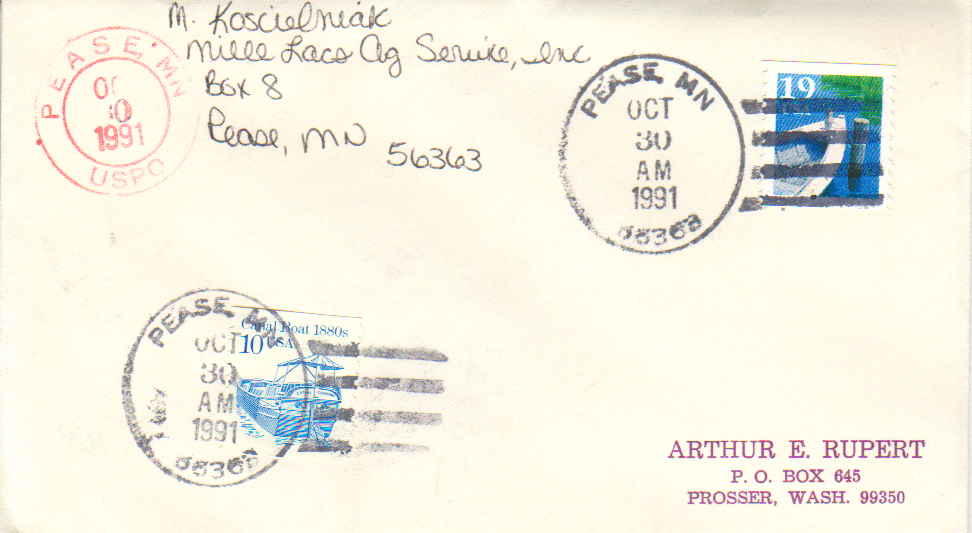 M. Koscielniak
Mille Lacs Ag Service, Inc
Box 8
Pease, MN
56363
PEASE, MN
1991
USPO
PEASE, MN
OCT
30
AM
1991
56363
19
PEASE, MN
OCT
30
AM
1991
56363
Canal Boat 1880s
10c USA
ARTHUR E. RUPERT
P. O. BOX 645
PROSSER, WASH. 99350